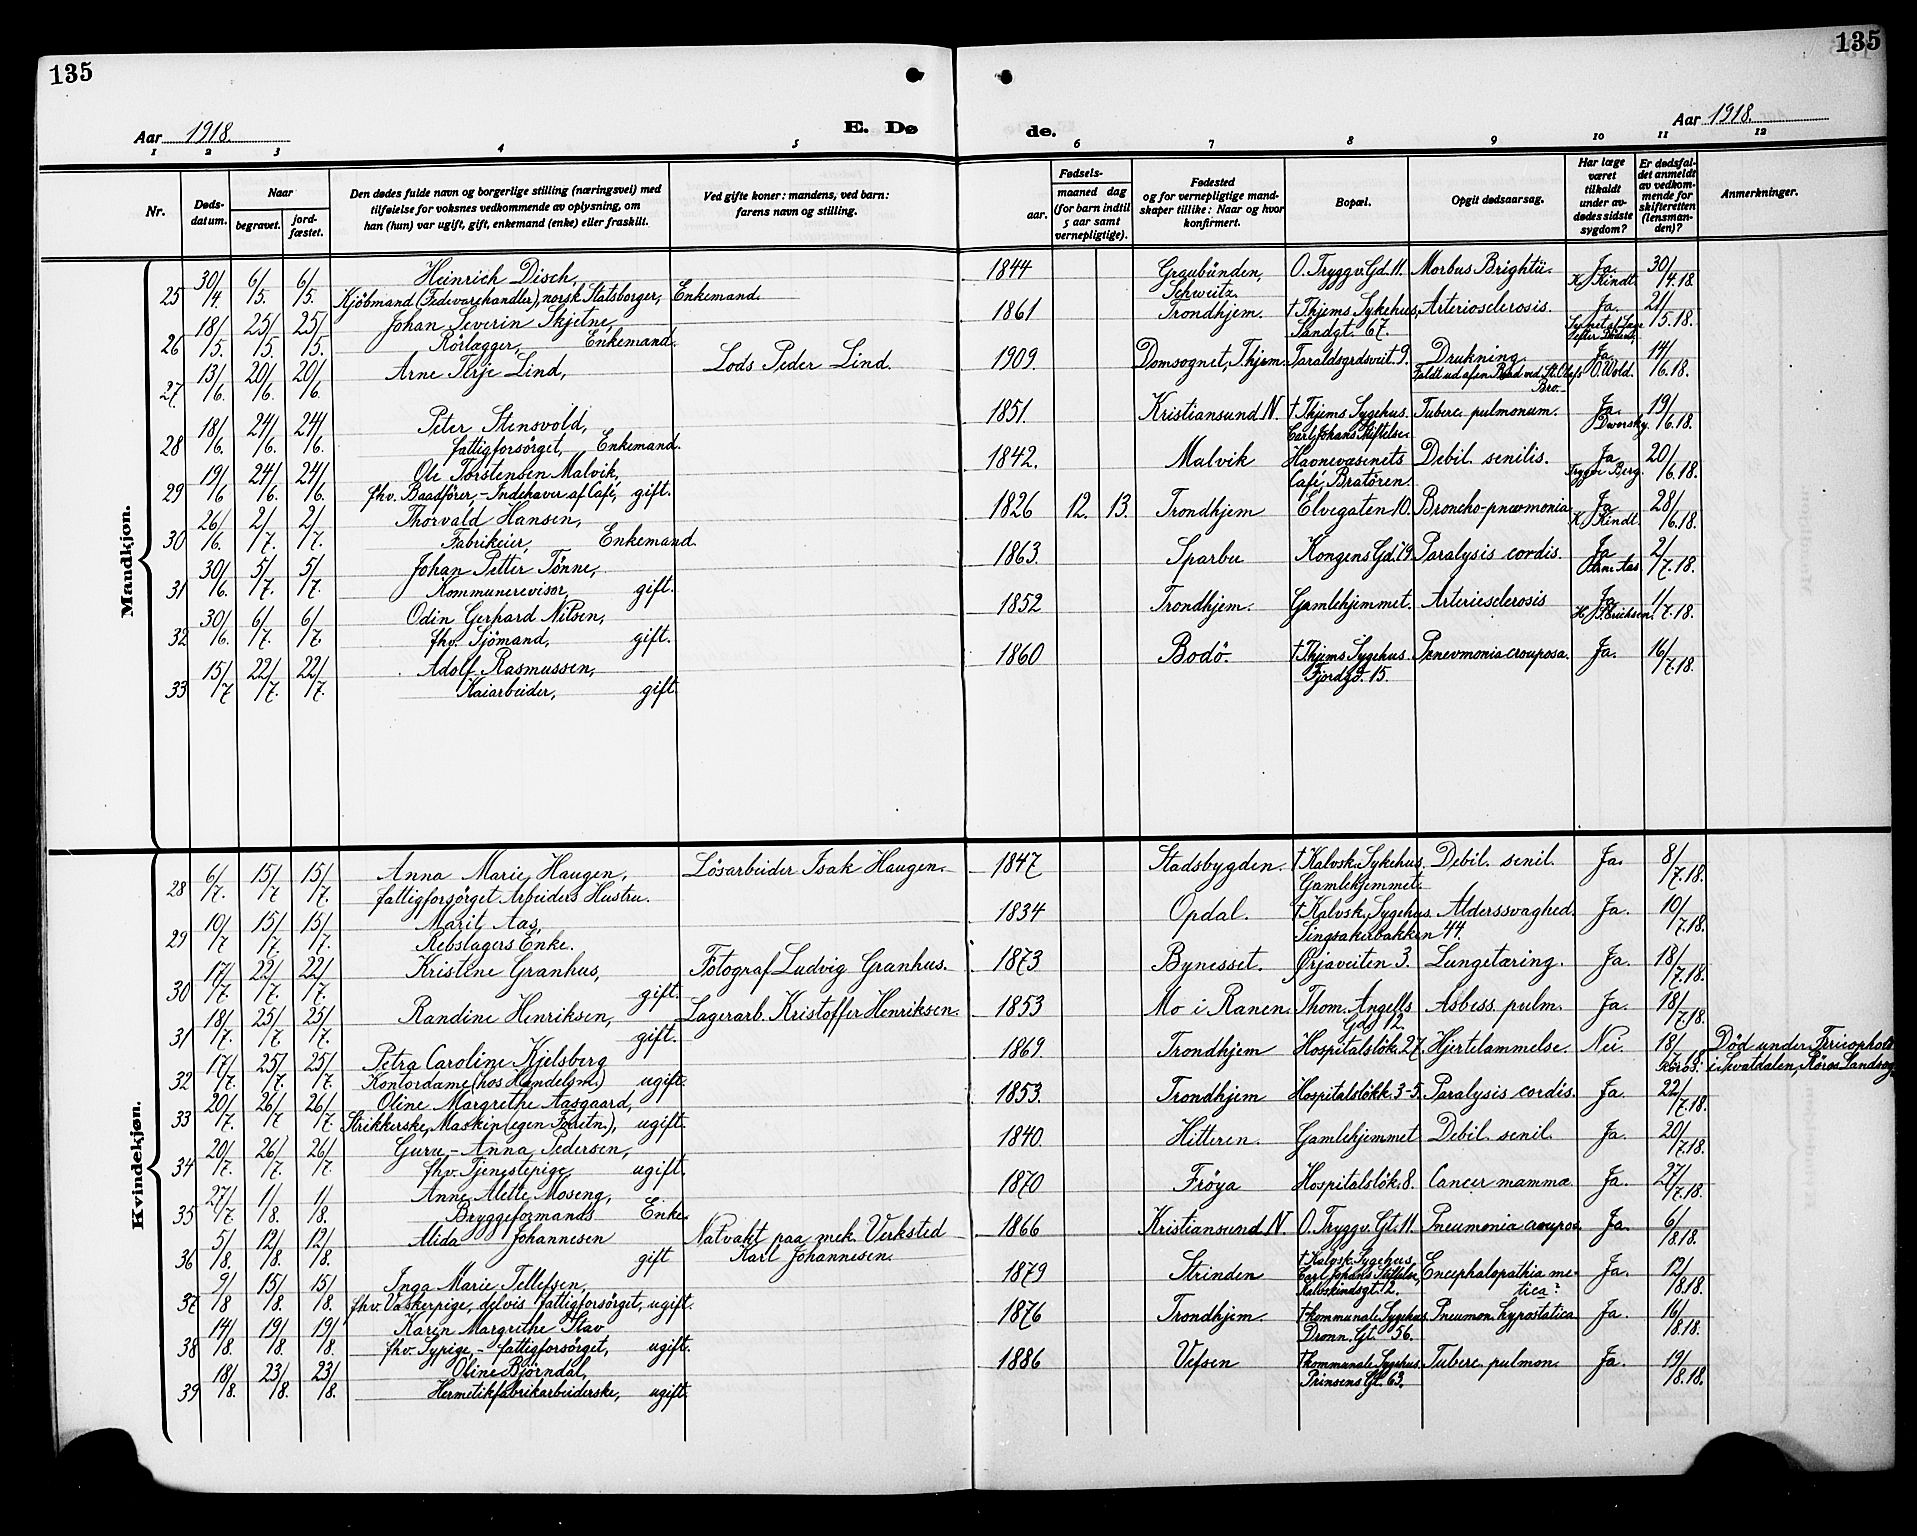 135
135
Aar 1918.
E. Dø
de.
Aar 1918.
1 2 3 4 5 6 7 8 9 10 11 12
Nr.
Døds-datum.
Naar
begravet.
jord-fæstet.
Den dødes fulde navn og borgerlige stilling (næringsvei) med tilføielse for voksnes vedkommende av oplysning, om han (hun) var ugift, gift, enkemand (enke) eller fraskilt.
Ved gifte koner: mandens, ved barn: farens navn og stilling.
Fødsels-
aar.
maaned dag
(for barn indtil 5 aar samt vernepligtige).
Fødested og for vernepligtige mandskaper tillike: Naar og hvor konfirmert.
Bopæl.
Opgit dødsaarsag.
Har læge været tilkaldt under avdødes sidste sygdom?
Er dødsfaldet anmeldt av vedkommende for skifteretten (lensmanden)?
Anmerkninger.
Mandkjøn.
25 30/4. 6/5. 6/5. Heinrich Disch, 1844 Graubünden, O. Tryggv. Gd. 11. Morbus Brightii. Ja. 30/4.18.
Kjöbmand (Fedevarehandler), norsk Statsborger, Enkemand. Schweitz. K. J. Kindt
26 18/5. 25/5. 25/5. Johan Severin Skjetne, 1861 Trondhjem. † Thjems Sykehus, Arteriosclerosis. Ja. 21/5.18.
Rörlægger, Enkemand. Sandgt. 67.
27 13/6. 20/6. 20/6. Arne Terje Lind, Lods Peder Lind. 1909. Domsognet, Thjem. Taraldsgrdsveit 9. Drukning. Ja. 14/6.18.
Faldt ud af en Baad ved St. Olafs Bro. O. Wold.
28 18/6. 24/6. 24/6. Peter Stensvold, 1851. Kristiansund N. † Thjems Sygehus. Tuberc. pulmonum. Ja. 19/6.18.
fattigforsörget, Enkemand. Carl Johans Stiftelse. Dworsky.
29 19/6 24/6. 24/6. Ole Torstensen Malvik, 1842. Malvik Havnevæsenets Debil. senilis. Ja 20/6.18.
fhv. Baadförer, - Indehaver af Café, gift. Café, Bratören. Trygve Berg.
30 26/6. 2/7. 2/7. Thorvald Hansen, 1826 12. 13. Trondhjem Elvegaten 10. Broncho-pnevmonia. Ja 28/6.18.
Fabrikeier, Enkemand. K. J. Kindt.
31 30/6. 5/7. 5/7. Johan Petter Tønne, 1863. Sparbu Kongens Gd. 79. Paralysis cordis. Ja 2/7.18.
Kommunerevisor, gift. Arne Aas
32 30/6. 6/7. 6/7. Odin Gerhard Nilsen, 1852 Trondhjem. Gamlehjemmet. Arteriesclerosis Ja 1/7.18.
fhv. Sjömand, gift. Erichsen.
33 15/7 22/7. 22/7. Adolf Rasmussen, 1860 Bodö. † Thjems Sygehus. Pnevmonia crouposa. Ja. 16/7.18.
Kaiarbeider, gift. Fjordgt. 15.
Kvindekjøn.
28 6/7. 15/7 15/7. Anna Marie Haugen, Lösarbeider Isak Haugen. 1847 Stadsbygden. † Kalvsk. Sykehus, Debil. senil. Ja. 8/7.18.
fattigforsörget Arbeiders Hustru. Gamlehjemmet.
29 10/7 15/7. 15/7. Marit Aas, 1834 Opdal. † Kalvsk. Sygehus. Alderssvaghed. Ja. 10/7.18.
Rebslagers Enke. Singsakerbakken 44.
30 17/7. 22/7. 22/7. Kristine Granhus, Fotograf Ludvig Granhus. 1873 Bynesset. Ørjaveiten 3. Lungetæring. Ja. 18/7.18.
gift.
31 18/7. 25/7. 25/7. Randine Henriksen, Lagerarb. Kristoffer Henriksen. 1853 Mo i Ranen. Thom. Angells Asbess. pulm. Ja. 18/7.18.
gift. Gd. 12.
32 17/7. 25/7. 25/7. Petra Caroline Kjelsberg 1869. Trondhjem Hospitalslök. 27. Hjertelammelse. Nei. 18/7.18. Död under Ferieophold
Kontordame (hos Handelsm.) ugift. i Kvatdalen, Röros Landsogn
33 20/7. 26/7 26/7. Oline Margrethe Aasgaard, 1853. Trondhjem Hospitalslökk. 3-5. Paralysis cordis. Ja. 22/7.18.
Strikkerske, Maskin (egen Forretn.), ugift.
34 20/7. 26/7. 26/7. Guru - Anna Pedersen, 1840. Hitteren. Gamlehjemmet Debil. senil. Ja. 20/7.18.
fhv. Tjenestepige, ugift.
35 27/7. 1/8. 1/8. Anne Alette Moseng, 1870 Fröya Hospitalslök. 8. Cancer mammæ. Ja. 27/7.18.
Bryggeformands Enke.
36 5/8. 12/8. 12/8. Alida Johannesen Natvakt paa mek. Verksted 1866 Kristiansund N. O. Tryggv. Gt. 11. Pneumonia croupos. Ja. 6/8.18.
gift Karl Johannesen.
37 9/8 15/8. 15/8. Inga Marie Tellefsen, 1879 Strinden † Kalvsk. Sygehus, Carl Johans Stiftelse, Kalvskindsgt. 2. Encephalopathia metica? Ja. 12/8.18.
fhv. Vaskerpige, delvis fattigforsörget, ugift.
38 14/8. 19/8. 19/8. Karen Margrethe Stav 1876 Trondhjem. † Kommunale Sygehus. Pneumon. hypostatica Ja. 16/8.18.
fhv. Sypige, - fattigforsörget, ugift. Dronn. Gt. 56.
39 18/8. 23/8. 23/8. Oline Björndal, 1886 Vefsen † Kommunale Sygehus. Tuberc. pulmon. Ja. 19/8.18.
Hermetikfabrikarbeiderske, ugift. Prinsens Gt. 63.